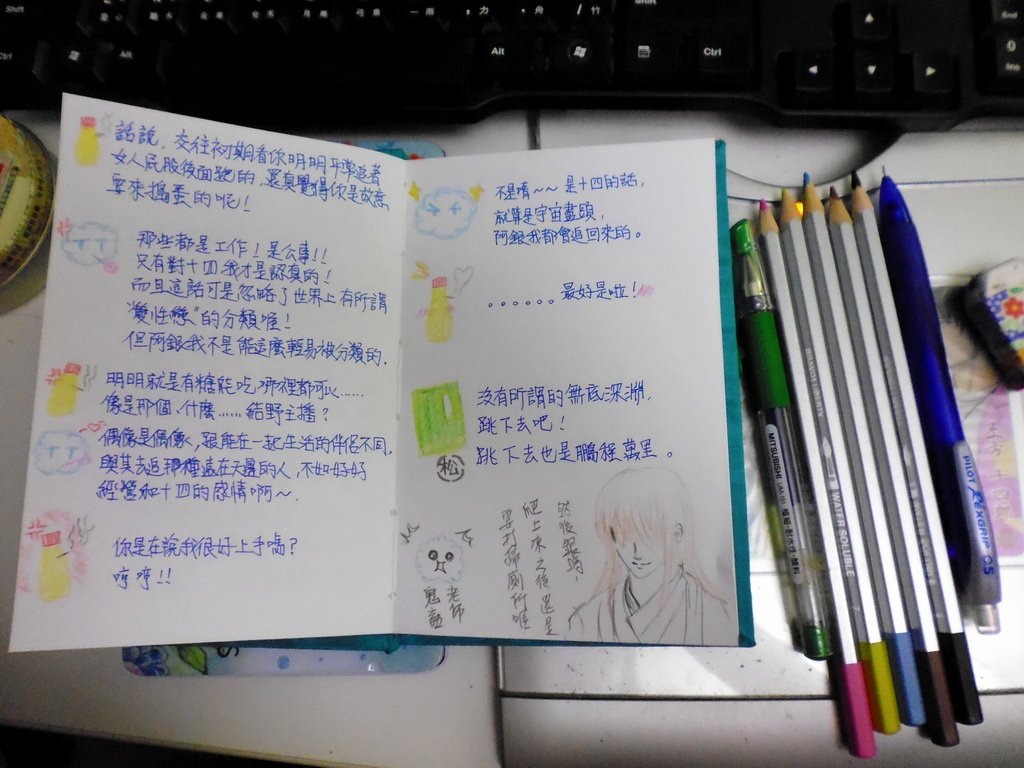 話說,交往初期看你明明平常追著
女人屁股後面跑的,還真覺得你是故意
要來搗蛋的呢!
那些都是工作!是公事!!
只有對十四,我才是認真的!
而且這話可是忽略了世界上有所謂
"雙性戀"的分類喔!
但阿銀我不是能這麼輕易被分類的.
明明就是有糖能吃哪裡都可以……
像是那個,什麼……結野主播?
偶像是偶像,跟能在一起生活的伴侶不同.
與其去追那種遠在天邊的人,不如好好
經營和十四的感情啊~.
你是在說我很好上手嗎?
哼哼!!
不是唷~~是十四的話,
就算是宇宙盡頭,
阿銀我都會追回來的。
。。。。。。最好是啦!
沒有所謂的無底深淵,
跳下去吧!
跳下去也是鵬程萬里。
松
然後銀時,
爬上來之後還是
要打掃廁所喔
老師
鬼畜
Shift
Ctrl
Alt
Alt
Ctrl
Shift
End
0
Ins
MITSUBISHI
WATER SOLUBLE
PILOT Rexgrip 05
土方十四郎